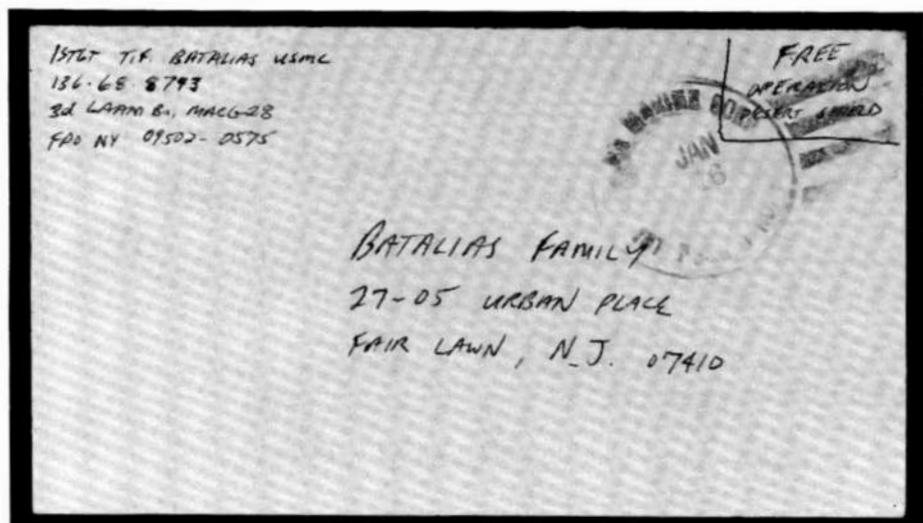 1STLT T.F. BATALIAS USMC
136-68-8793
3d LAAM Bn, MACG-28
FPO NY 09502-0575
FREE
OPERATION
DESERT SHIELD
MARINE
JAN
BATALIAS FAMILY
27-05 URBAN PLACE
FAIR LAWN, N.J. 07410